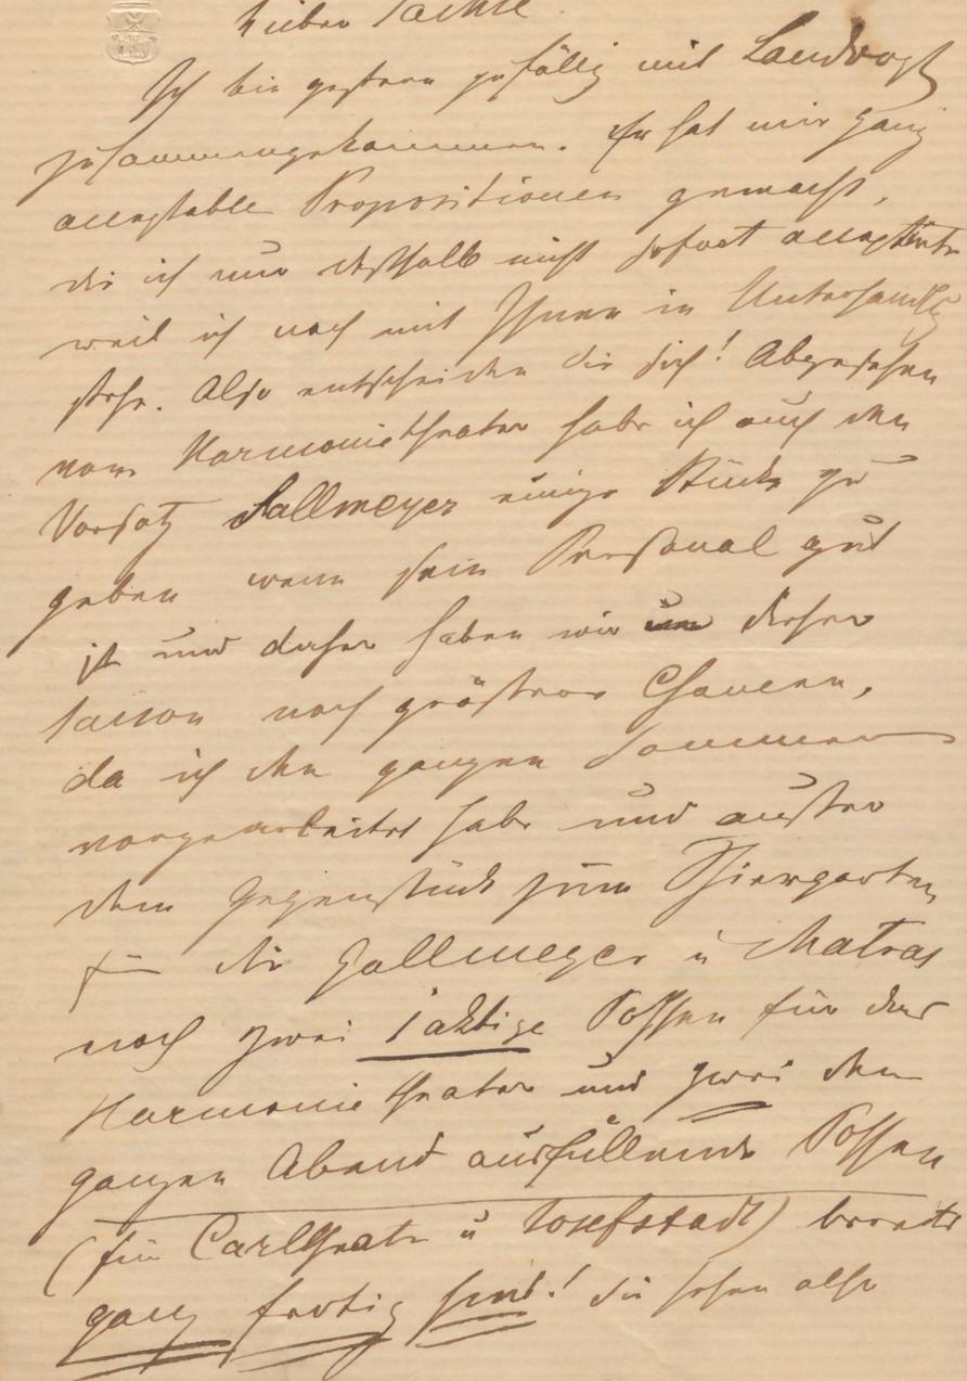 Lieber
Ich bin gestern zufällig mit Landvogt
zusammengekommen. Er hat mir ganz
acceptable Propositionen gemacht,
die ich nur deßhalb nicht sofort acceptirte
weil ich noch mit Ihnen in Unterhandlg
stehe. Also entscheiden Sie sich! Abgesehen
vom Harmonietheater habe ich auch den
Vorsatz Sallmeyer einige Stücke zu
geben wenn sein Personal gut
ist und daher haben wir diese
Saison noch größere Chancen,
da ich den ganzen Sommer
vorgearbeitet habe und außer
dem Gegenstück zum Thiergarten
für die Gallmeyer u Matras
noch zwei 1aktige Possen für das
Harmonietheater und zwei den
ganzen Abend ausfüllende Possen
(für Carltheater u Josefstadt) bereits
ganz fertig sind! Sie sehen also